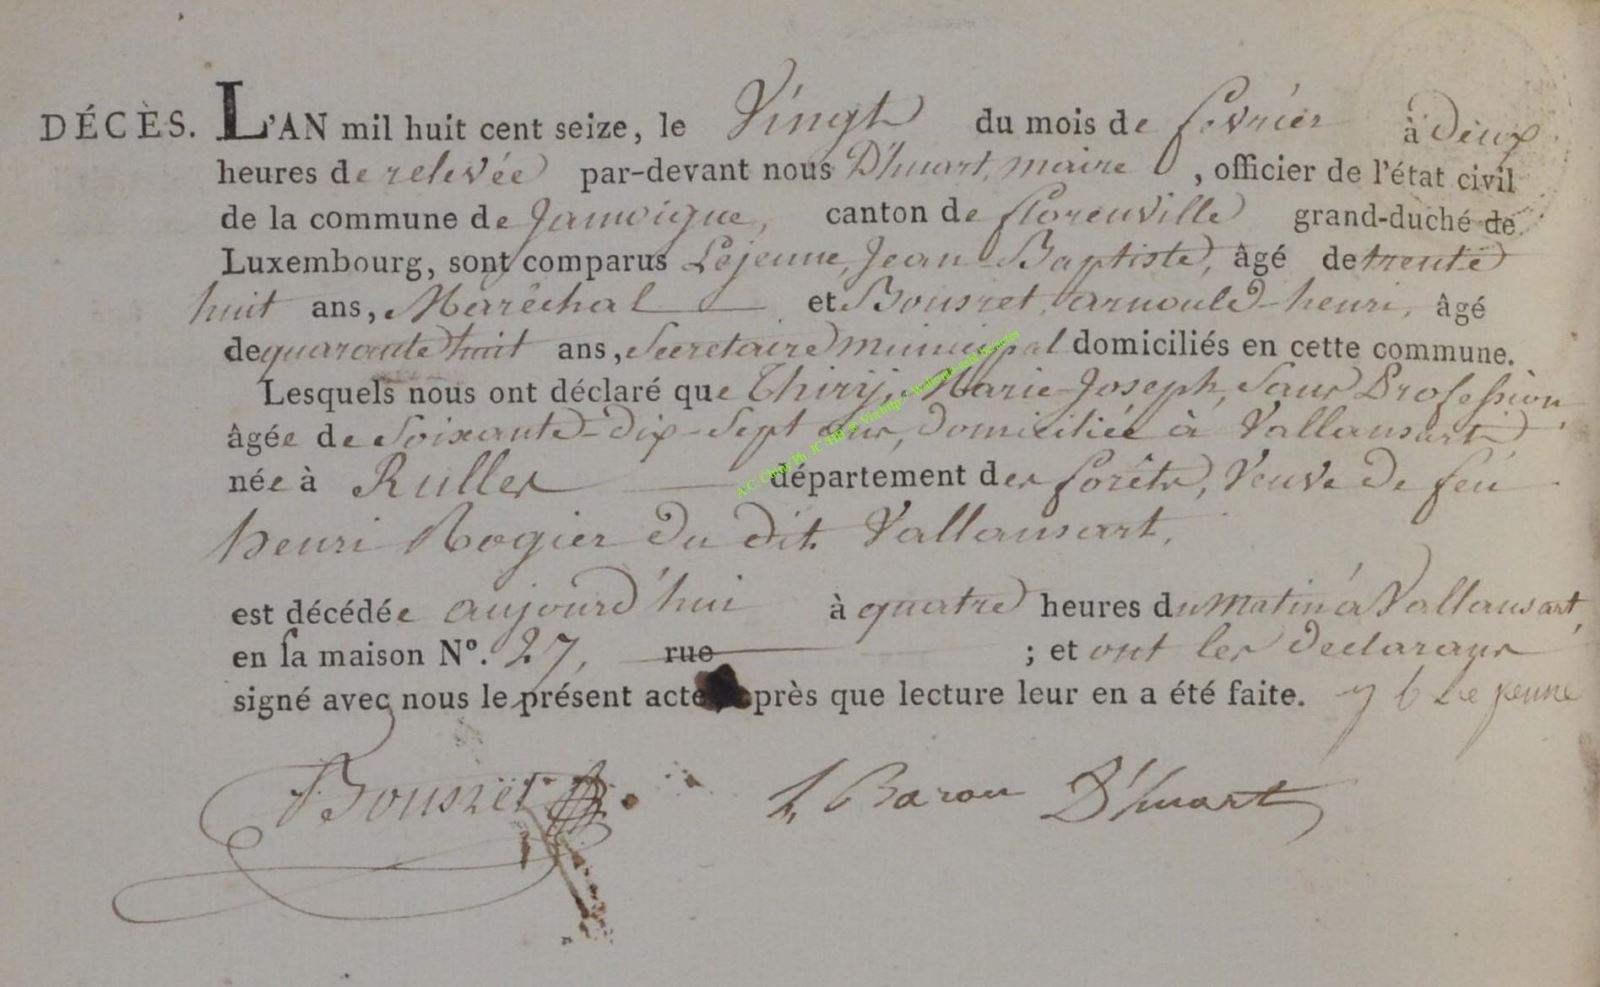 DÉCÈS. L'AN mil huit cent seize, le Vingt du mois de fevrier à deux
heures de relevée par-devant nous D'huart, maire, officier de l'état civil
de la commune de Jamoigne, canton de florenville grand-duché de
Luxembourg, sont comparus Lejeune, Jean-Baptiste, âgé de trente
huit ans, Maréchal et Bousret, arnould-henri, âgé
de quarante huit ans, Secretaire municipal domiciliés en cette commune.
Lesquels nous ont déclaré que Thiry, Marie-Joseph, Sans Profession,
âgée de Soixante-dix-Sept ans, domiciliée à Vallansart
née à Rulles département des forêts, Veuve de feu
henri Rogier du dit Vallansart,
est décédée aujourd'hui à quatre heures du matin à Vallansart,
en sa maison N°. 27, rue ; et ont les declarans
signé avec nous le présent acte, après que lecture leur en a été faite. J b Le jeune
Bousret Le Baron D'huart